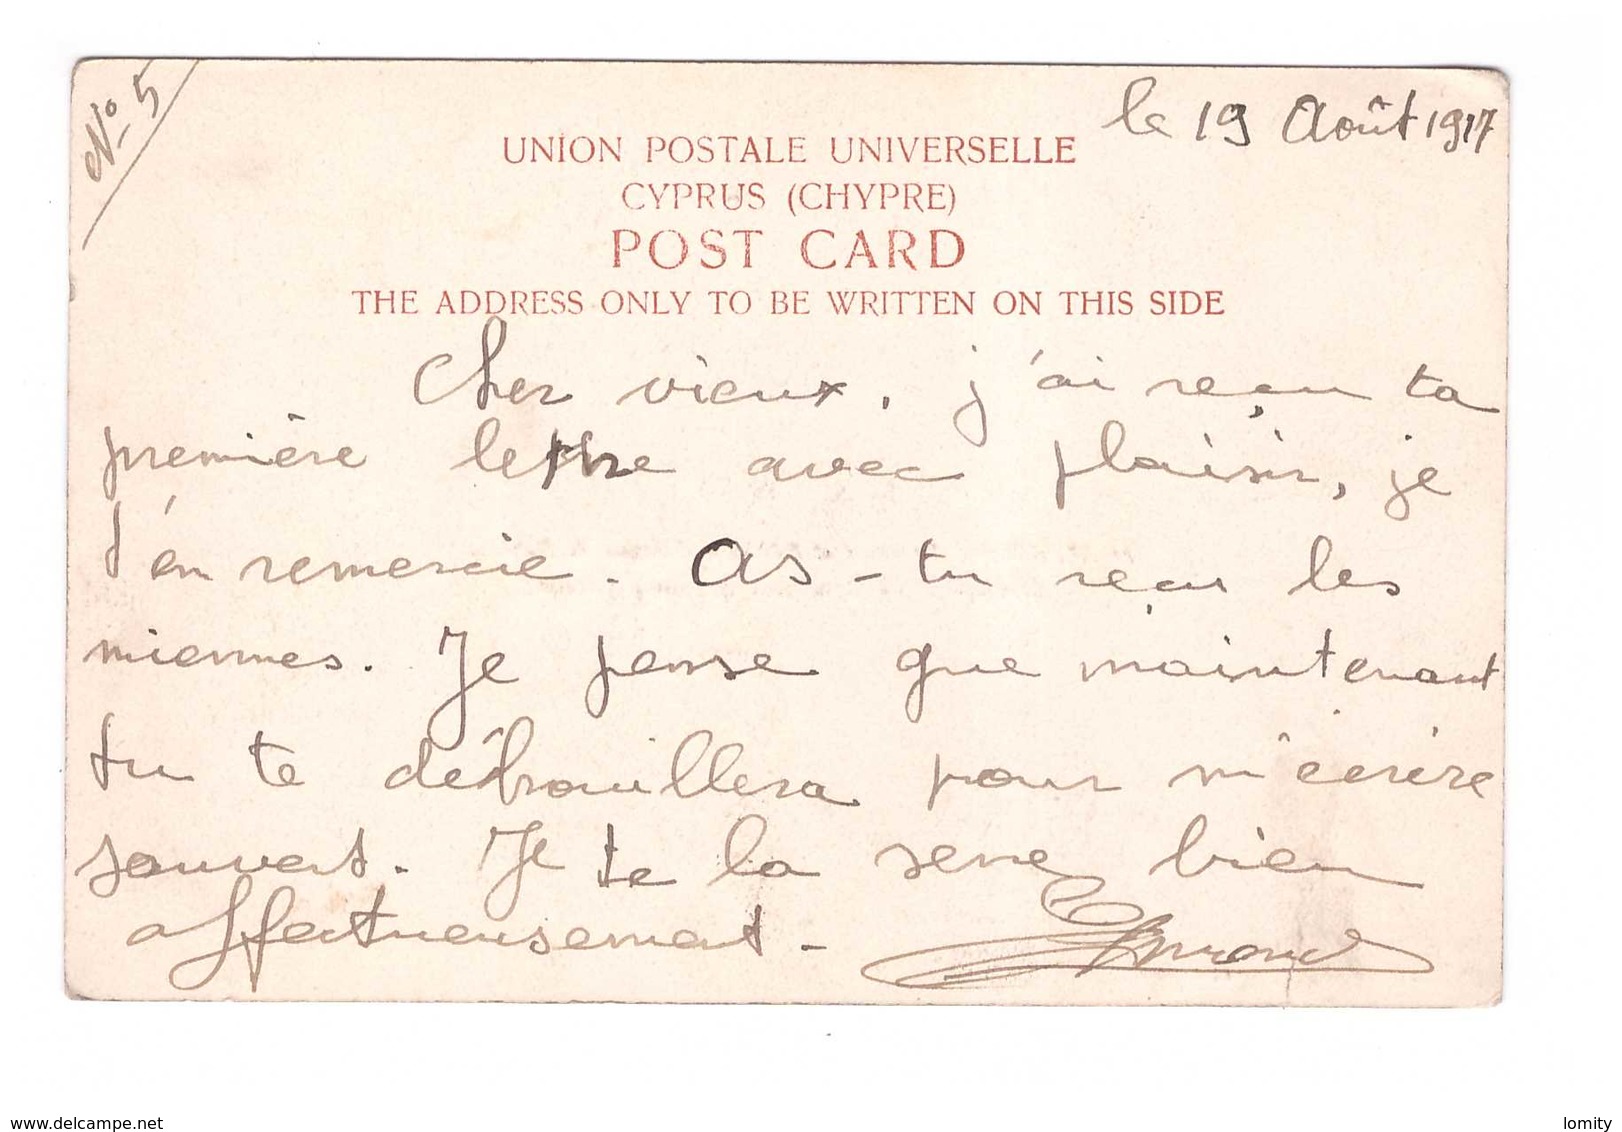 N° 5
le 19 Août 1917
UNION POSTALE UNIVERSELLE
CYPRUS (CHYPRE)
POST CARD
THE ADDRESS ONLY TO BE WRITTEN ON THIS SIDE
Cher vieux, j'ai reçu ta
première lettre avec plaisir, je
t'en remercie. As-tu reçu les
miennes. Je pense que maintenant
tu te débrouillera pour m'écrire
souvent. Je te la serre bien
affectueusement -
www.delcampe.net
lomity